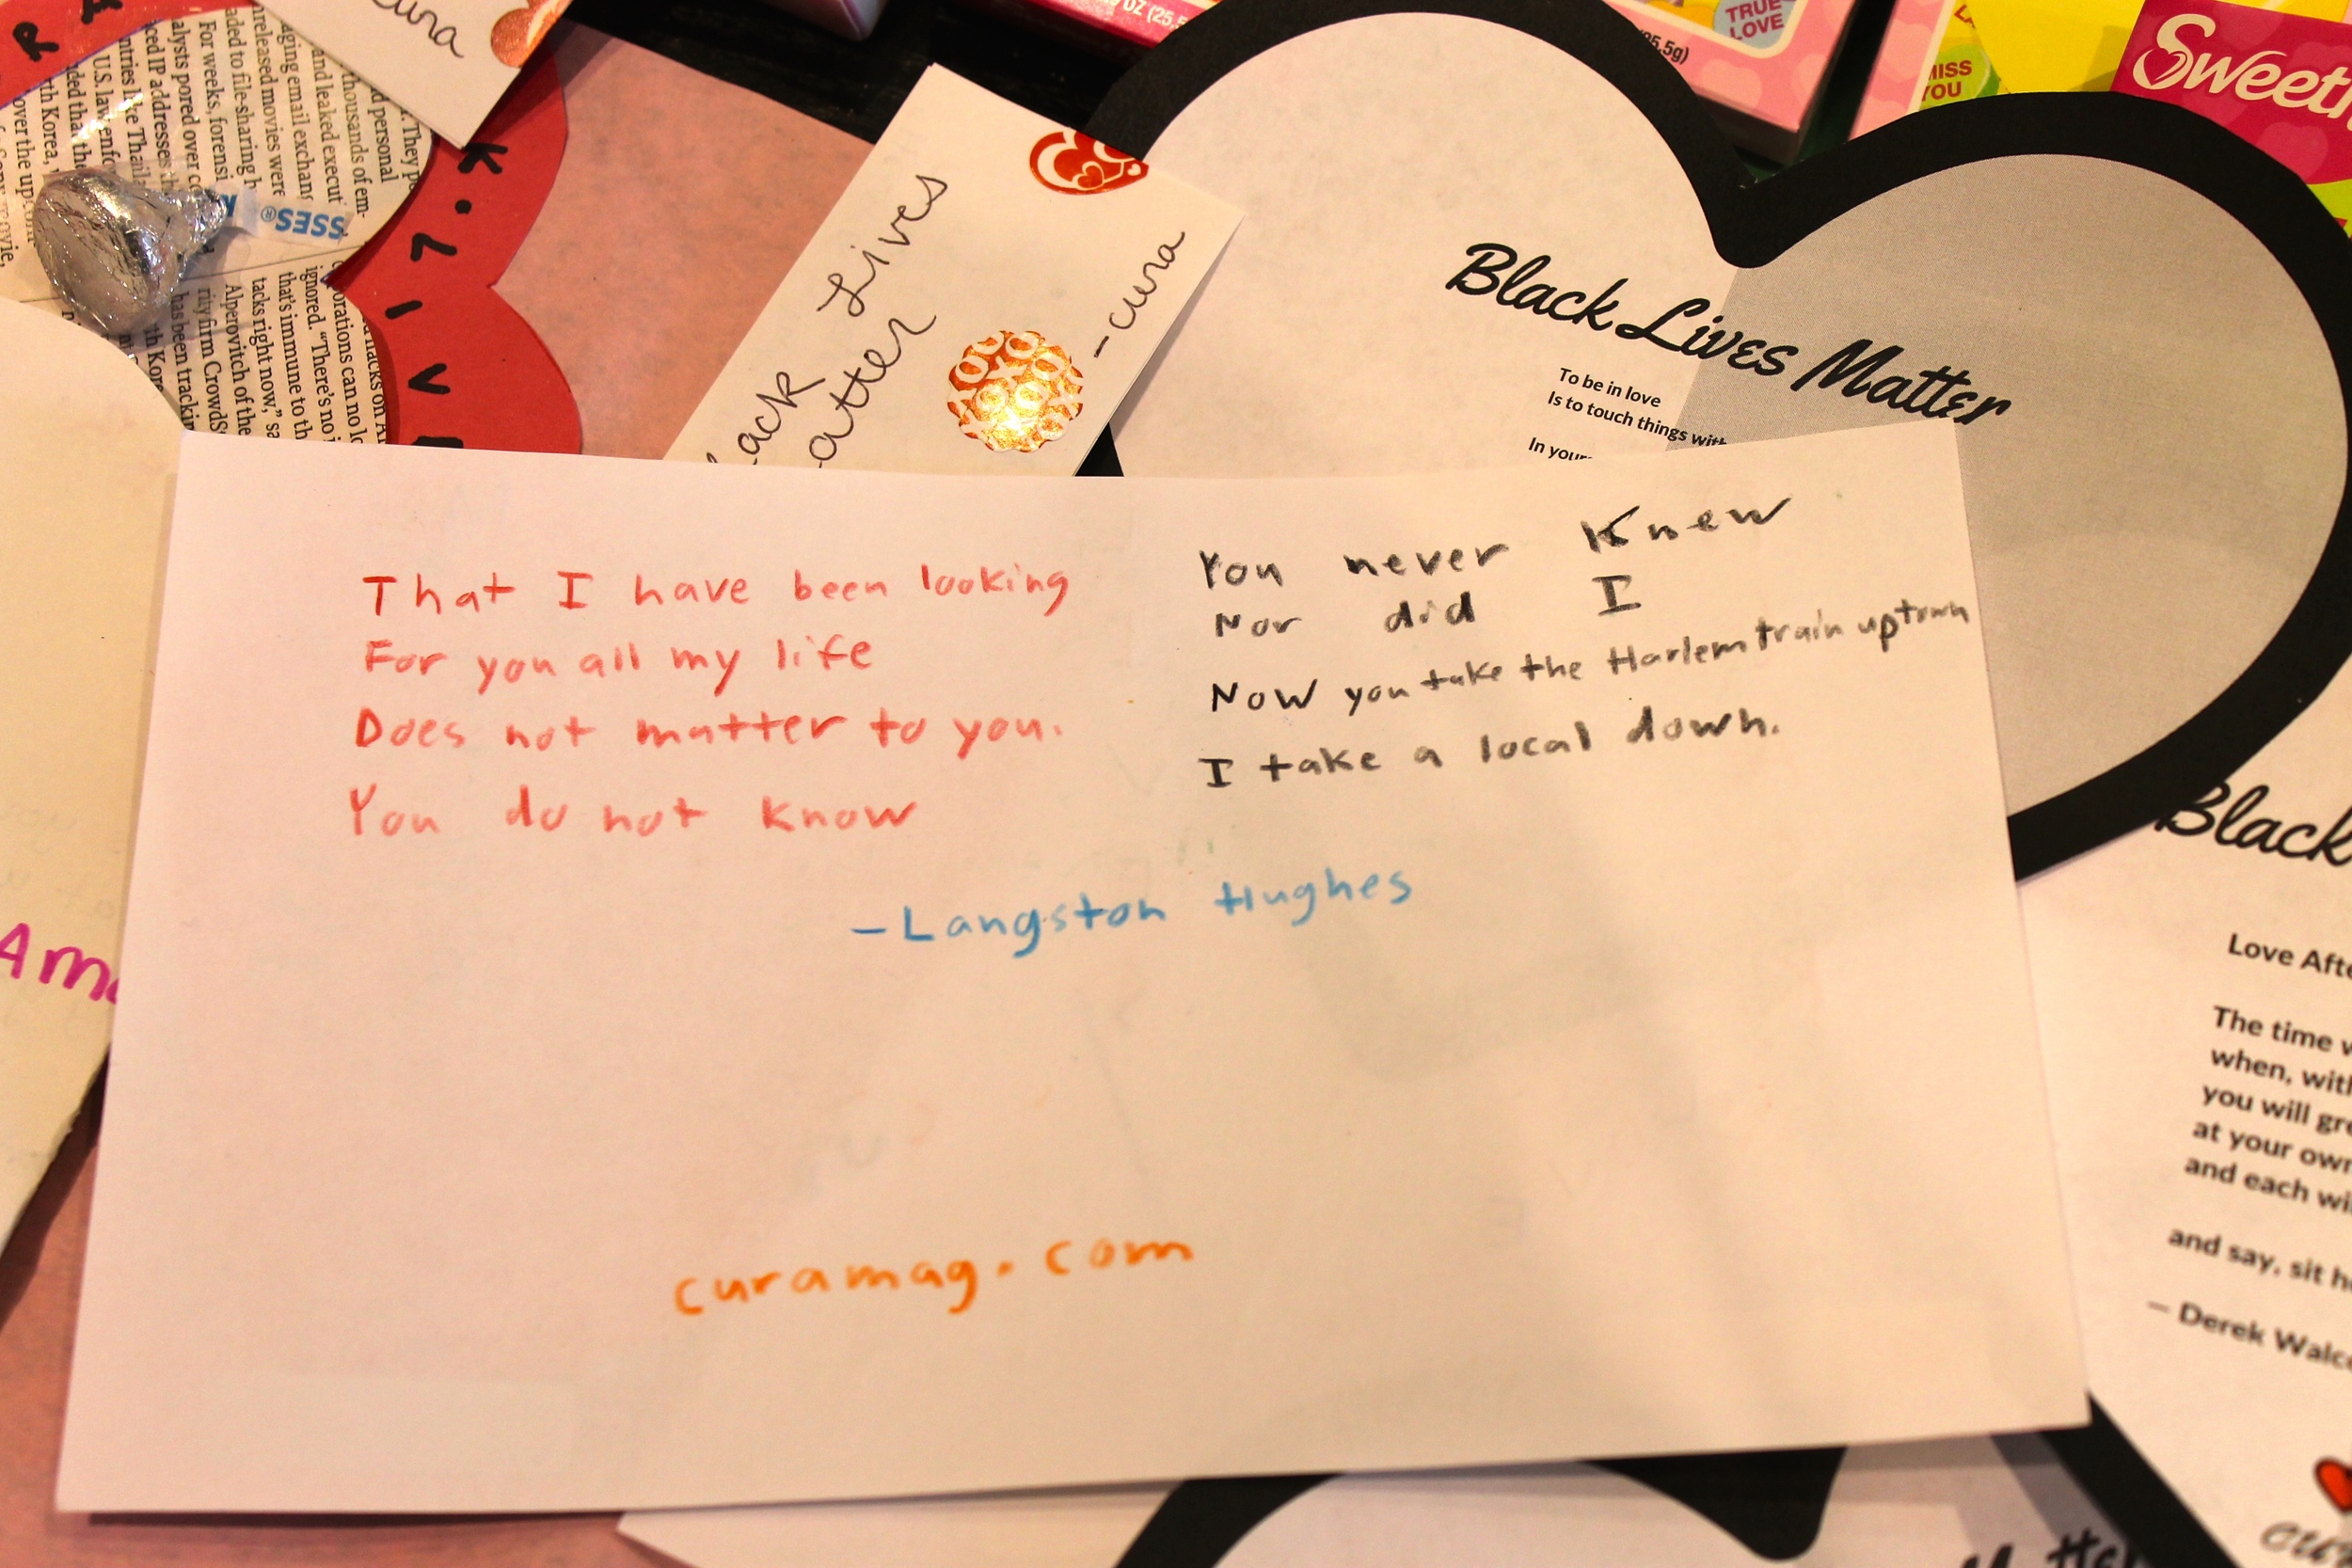 cura
OZ (25.5
TRUE
LOVE
25.5g)
MISS
YOU
Sweet
K.LIV
SSES®
thousands of em-
and leaked execut
aging email exchan
released movies were
aded to file-sharing
For weeks, forensi
alysts pored over
ced IP addresses
ntries like Thail
U.S. law enfo
ded that the
th Korea,
over the up
orations can no lo
ignored. "There's no i
that's immune to th
tacks right now," sa
Alperovitch of the
rity firm CrowdS
has been trackin
th Kor
Lives
ack
atter
-cura
Black Lives Matter
To be in love
Is to touch things with
In your
That I have been looking
For you all my life
Does not matter to you.
You do not know
You never Knew
Nor did I
Now you take the Harlem train uptown
I take a local down.
-Langston Hughes
curamag.com
Am
Black
Love Afte
The time w
when, with
you will gre
at your own
and each wi
and say, sit h
— Derek Walco
cu
Matte